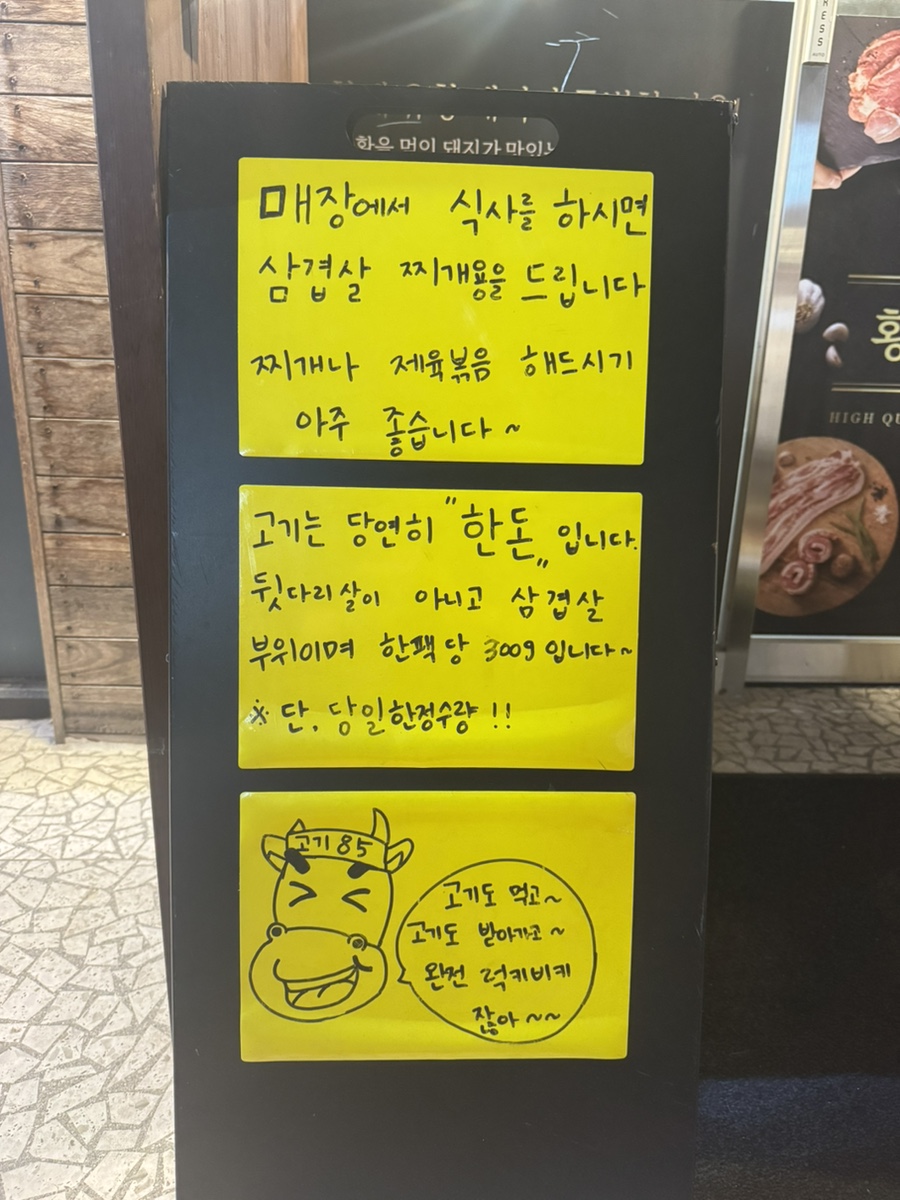 RESS
AUTO
황을 먹인 돼지가 맛있는
매장에서 식사를 하시면
삼겹살 찌개용을 드립니다
찌개나 제육볶음 해드시기
아주 좋습니다~
고기는 당연히 "한돈" 입니다.
뒷다리살이 아니고 삼겹살
부위이며 한팩당 300g 입니다~
※ 단, 당일한정수량 !!
고기 85
고기도 먹고~
고기도 받아가고~
완전 럭키비키
잖아~~
HIGH QU